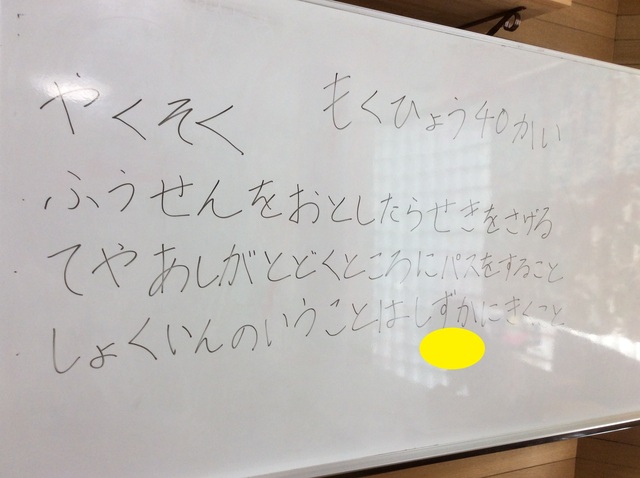 やくそく　もくひょう40かい
ふうせんをおとしたらせきをさげる
てやあしがとどくところにパスをすること
しょくいんのいうことはしずかにきくこと